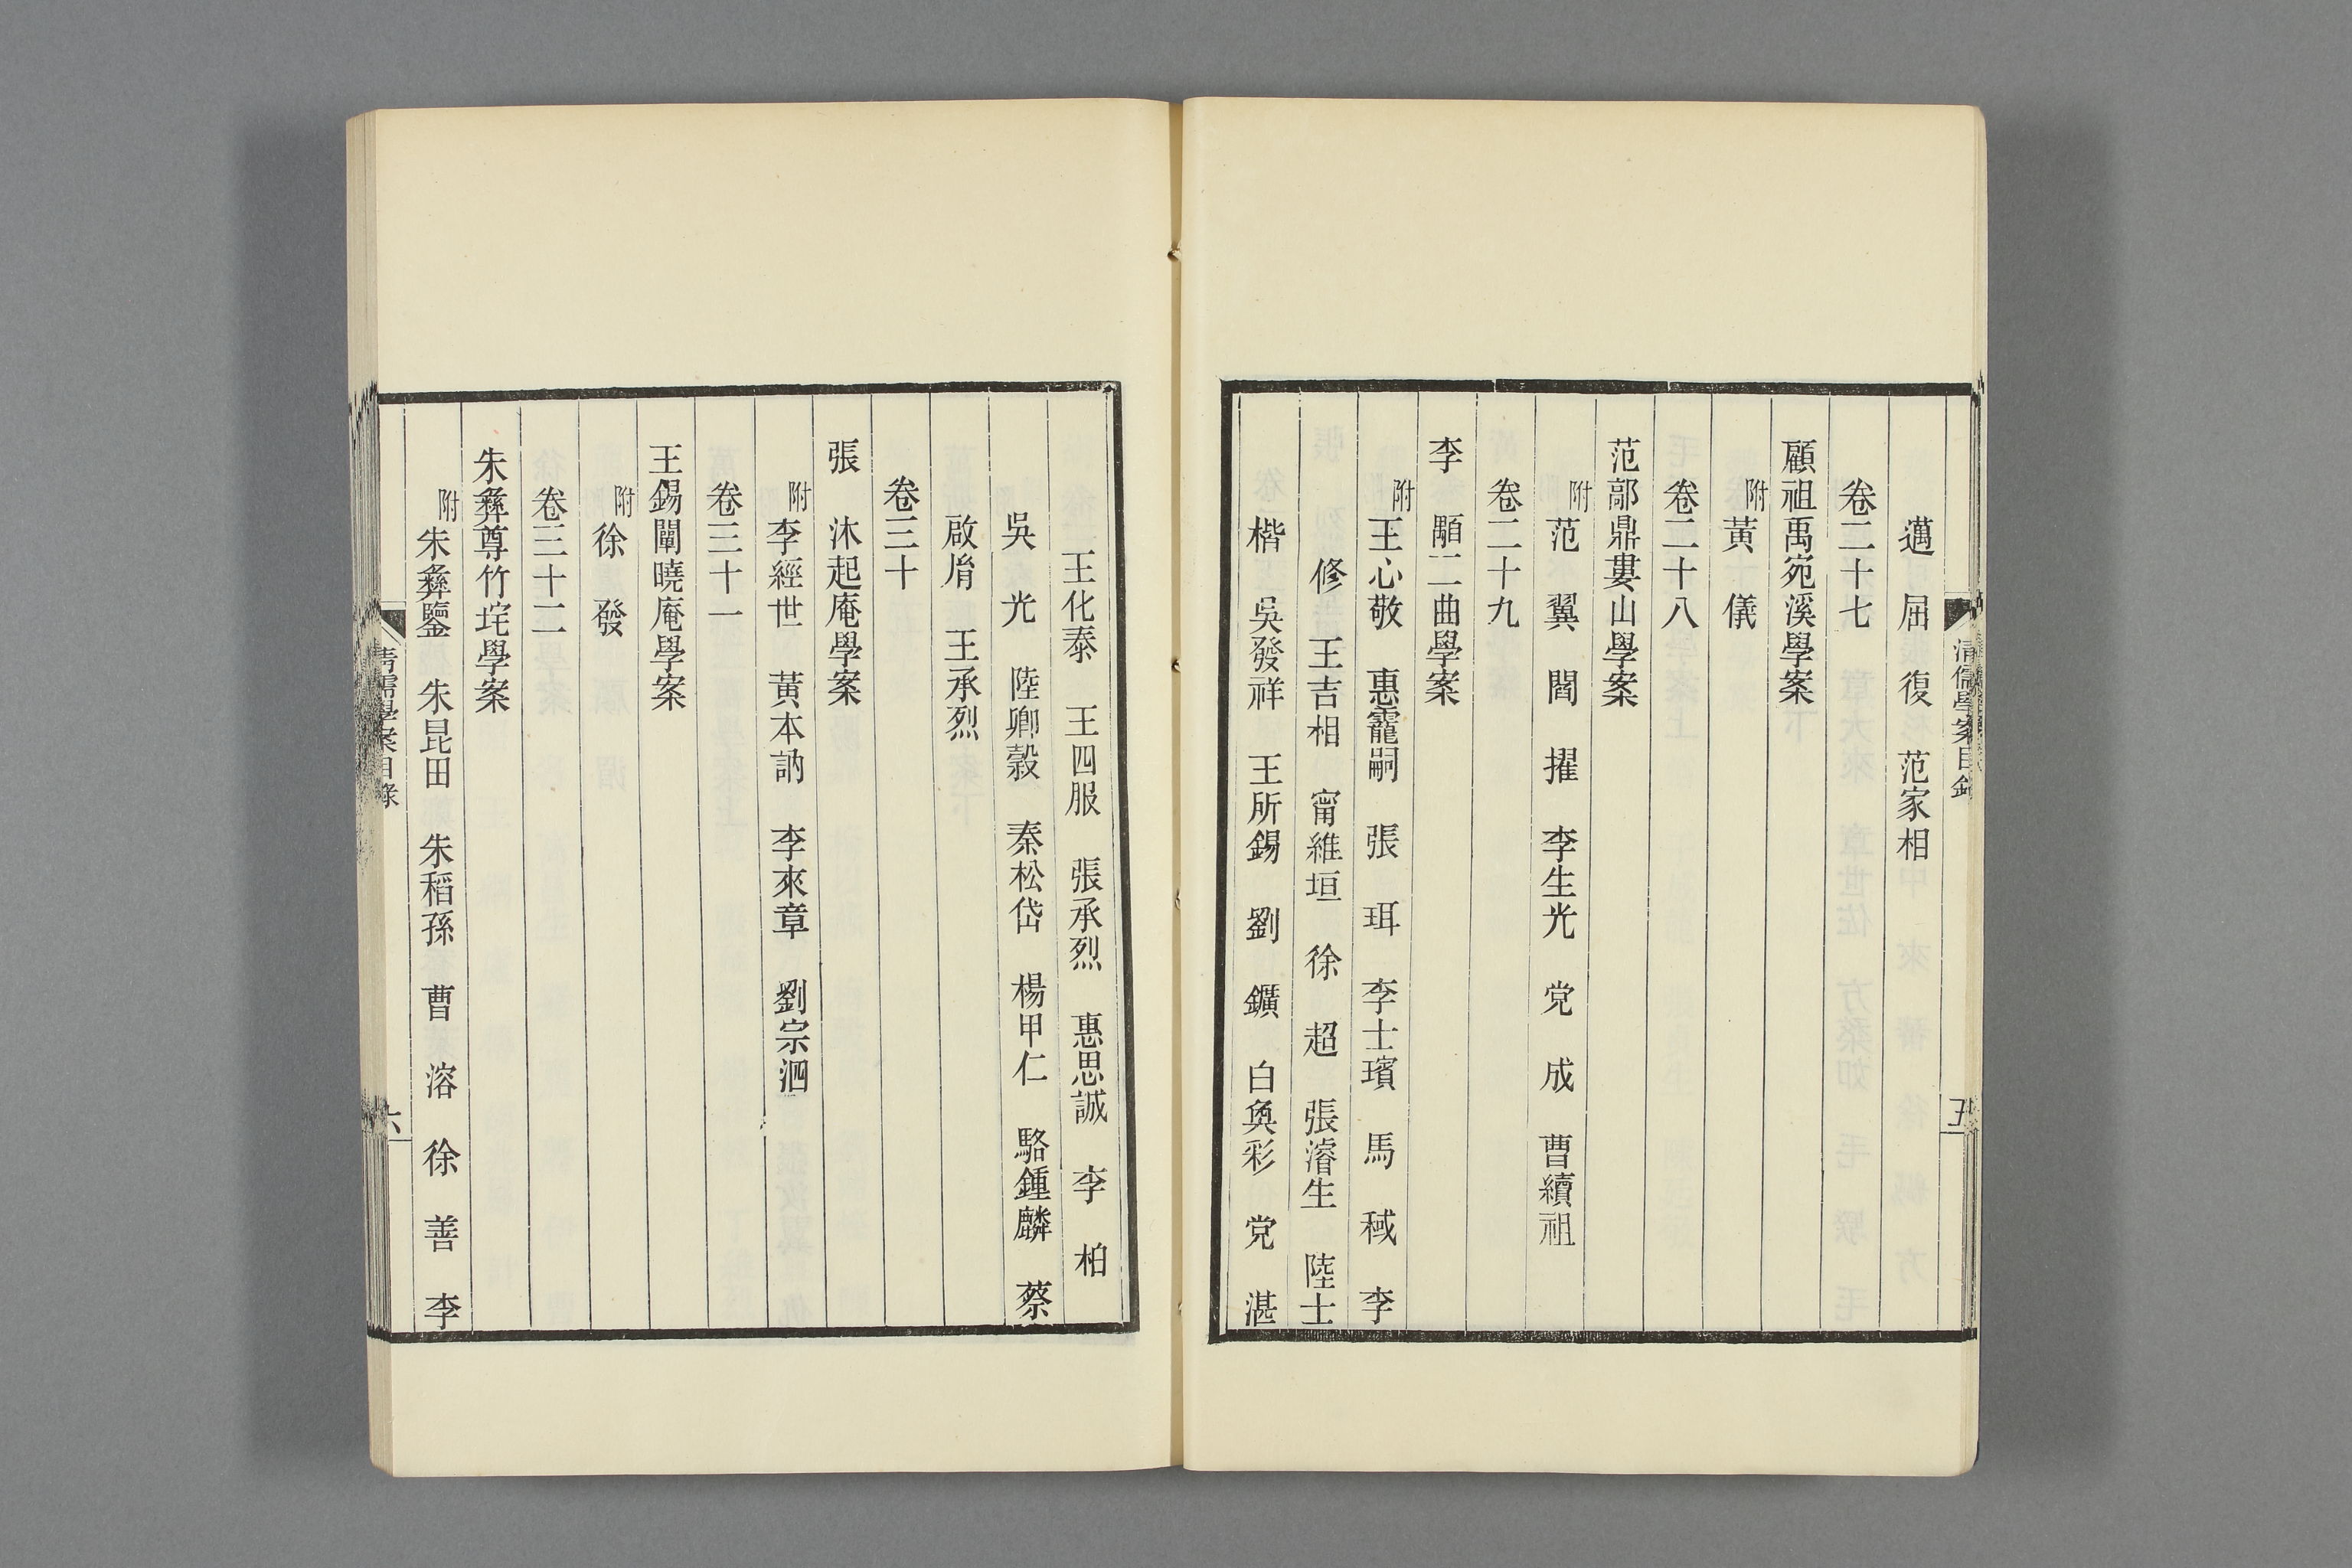 清儒學案目錄
五
邁　屈　復　范家相
卷二十七
顧祖禹宛溪學案
附黃　儀
卷二十八
范鄗鼎婁山學案
附范　翼　閻　擢　李生光　党　成　曹續祖
卷二十九
李　顒二曲學案
附王心敬　惠龗嗣　張　珥　李士璸　馬　棫　李
修　王吉相　甯維垣　徐　超　張濬生　陸士
楷　吳發祥　王所錫　劉　鑛　白奐彩　党　湛
王化泰　王四服　張承烈　惠思誠　李　柏
吳　光　陸卿穀　秦松岱　楊甲仁　駱鍾麟　蔡
啟胤　王承烈
卷三十
張　沐起庵學案
附李經世　黃本訥　李來章　劉宗泗
卷三十一
王錫闡曉庵學案
附徐　發
卷三十二
朱彝尊竹垞學案
附朱彝鑒　朱昆田　朱稻孫　曹　溶　徐　善　李
清儒學案目錄
六